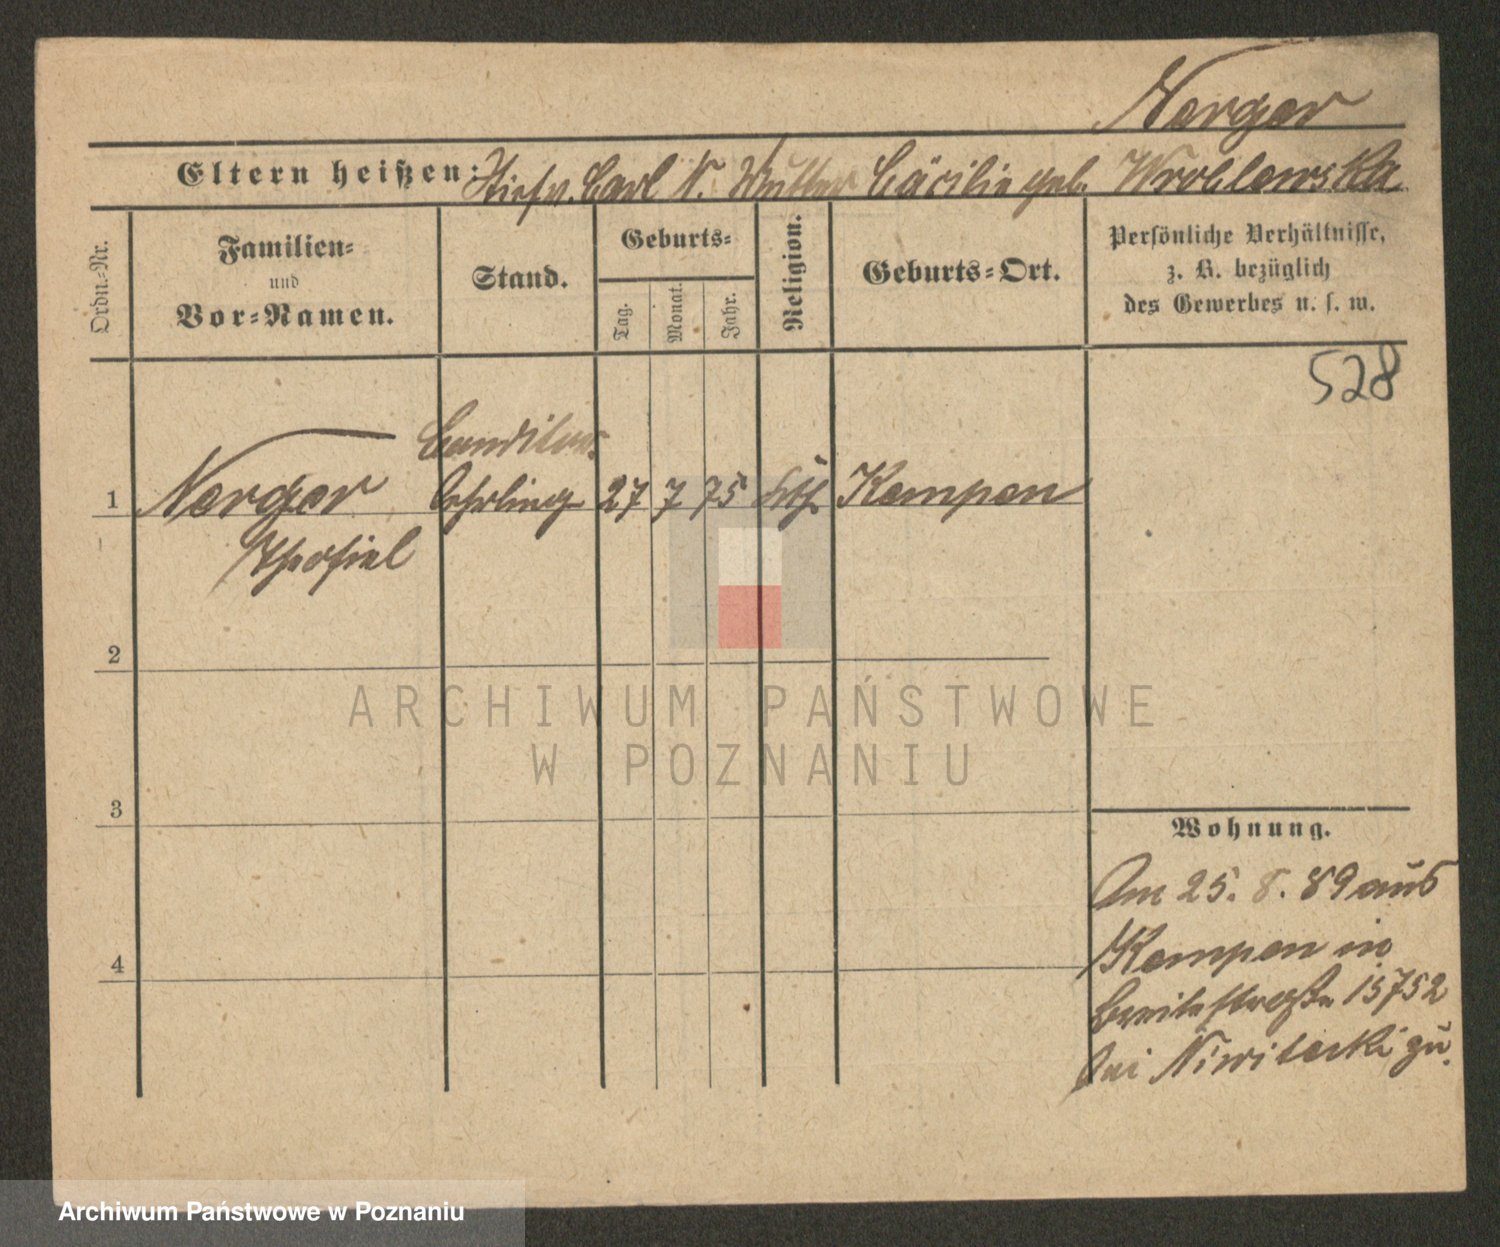 Nerger
Eltern heißen: Stiefv. Carl N. Mutter Cäcilie geb. Wroblewska
Ordn.-Nr.
Familien-
und
Vor-Namen.
Stand.
Geburts-
Tag.
Monat.
Jahr.
Religion.
Geburts-Ort.
Persönliche Verhältnisse,
z. B. bezüglich
des Gewerbes u. s. w.
528
Conditor
1 Nerger Lehrling 27 7 75 kth. Kempen
Theofiel
2
3
4
Wohnung.
Am 25. 8. 89 aus
Kempen in
Breitestraße
bei zu.
ARCHIWUM PAŃSTWOWE
W POZNANIU
Archiwum Państwowe w Poznaniu